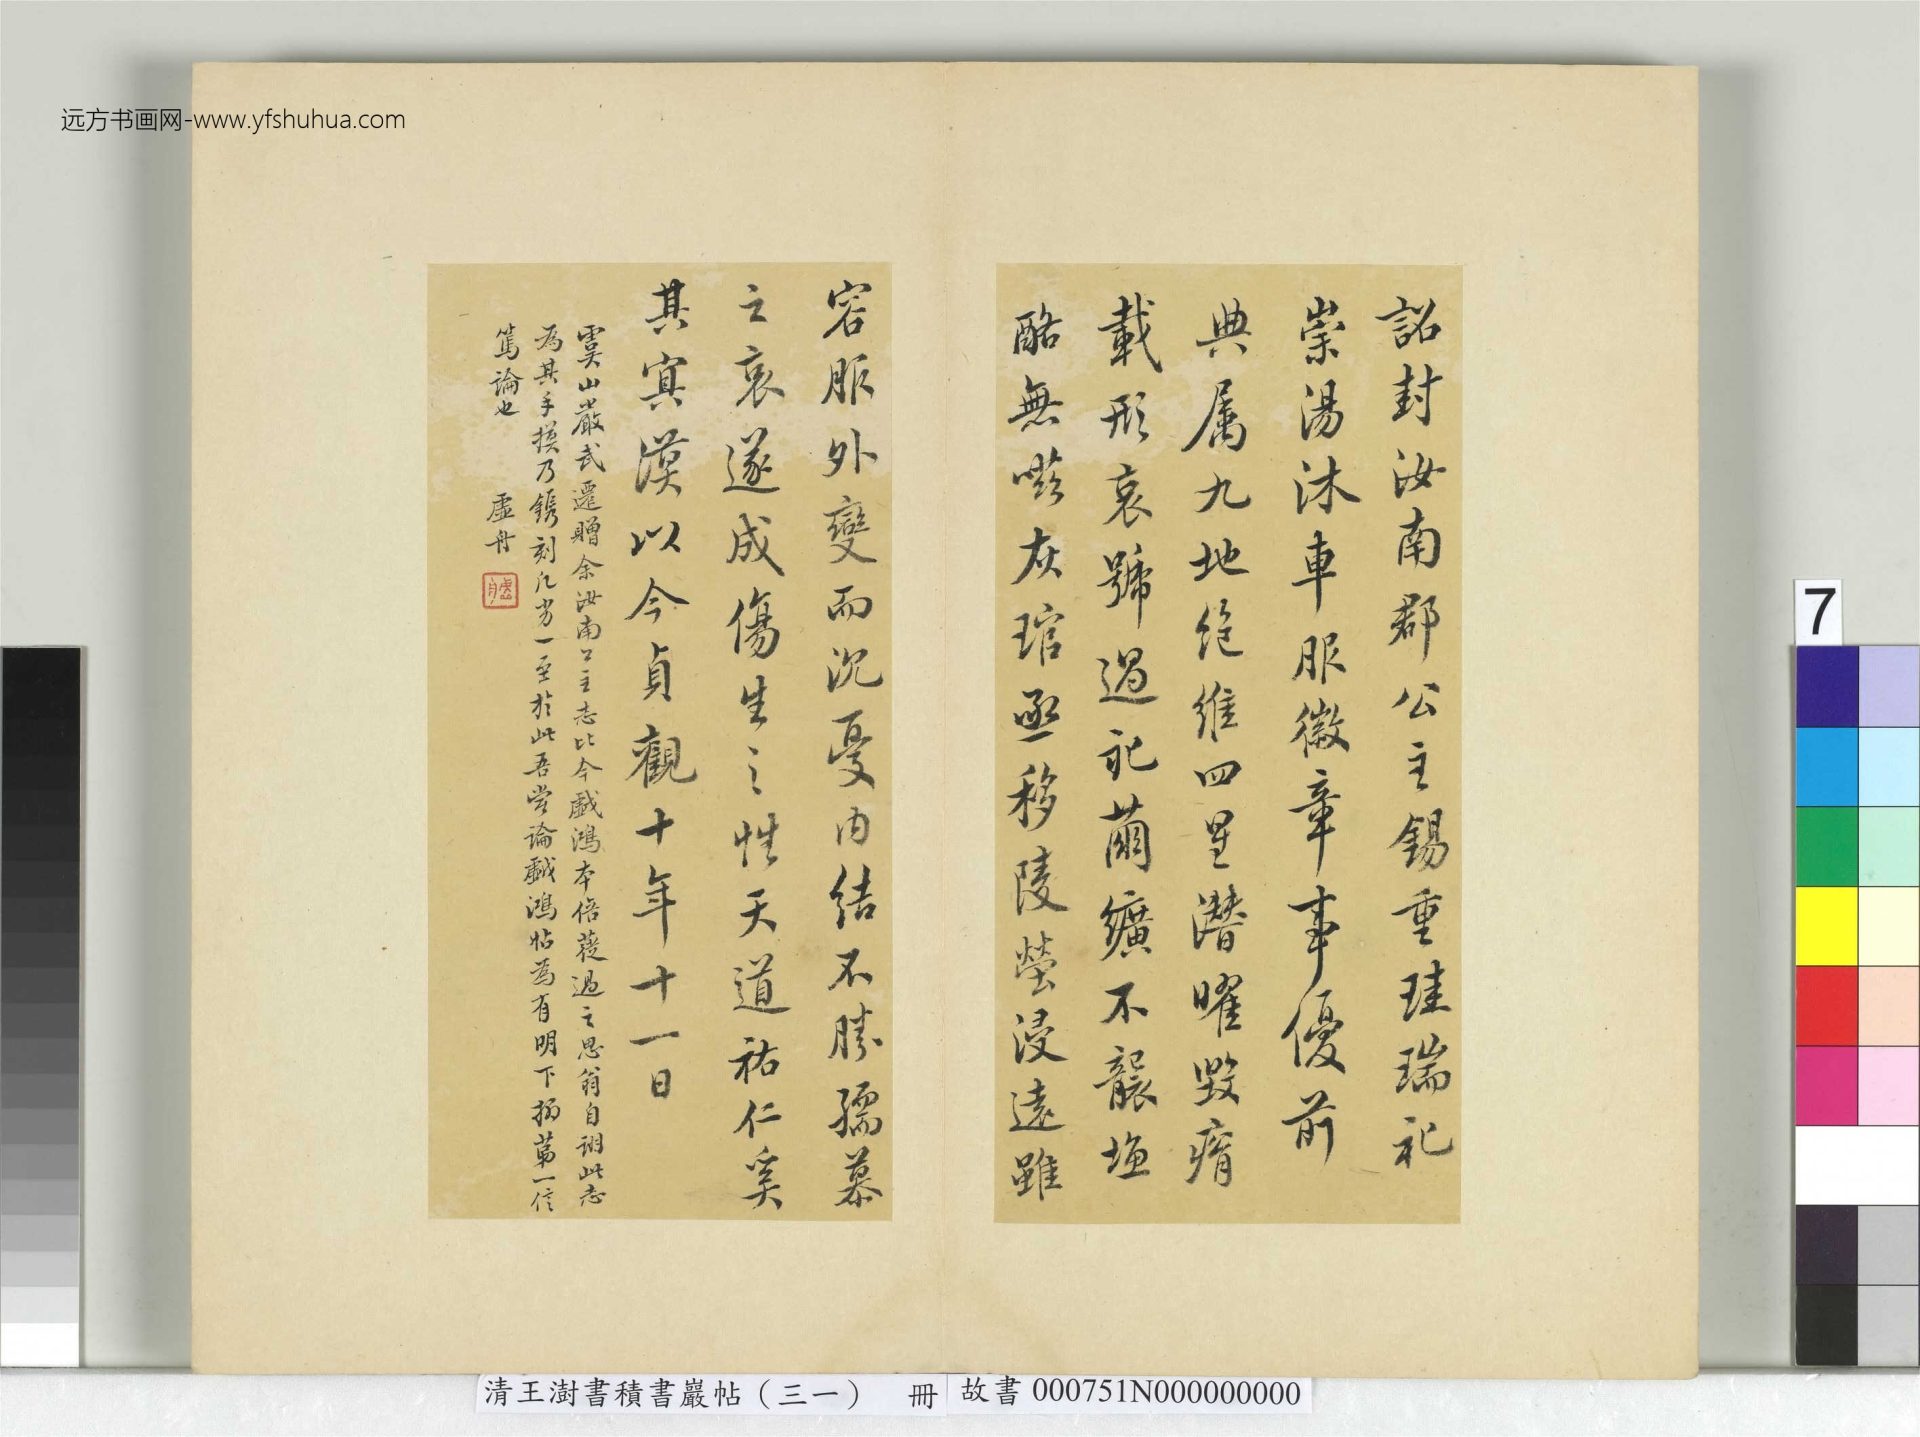 远方书画网-www.yfshuhua.com
詔封汝南郡公主錫重珪瑞礼
崇湯沐車服徽章事優前
典属九地絶維四星潜曜毀瘠
載形哀號過礼蕳纊不襲塩
酪無嗞灰琯亟移陵塋浸遠雖
容服外變而沉憂内結不勝孺慕
之哀遂成傷生之性天道祐仁奚
其寞漠以今貞觀十年十一日
虞山嚴武遷贈余汝南公主志比今戲鴻本倍蓰過之思翁自謂此志
為其手摸乃鐫刻凡劣一至於此吾嘗論戲鴻帖為有明下搨苐一信
篤論也
虛舟
虛舟
7
清王澍書積書巖帖（三一） 冊
故書 000751N000000000